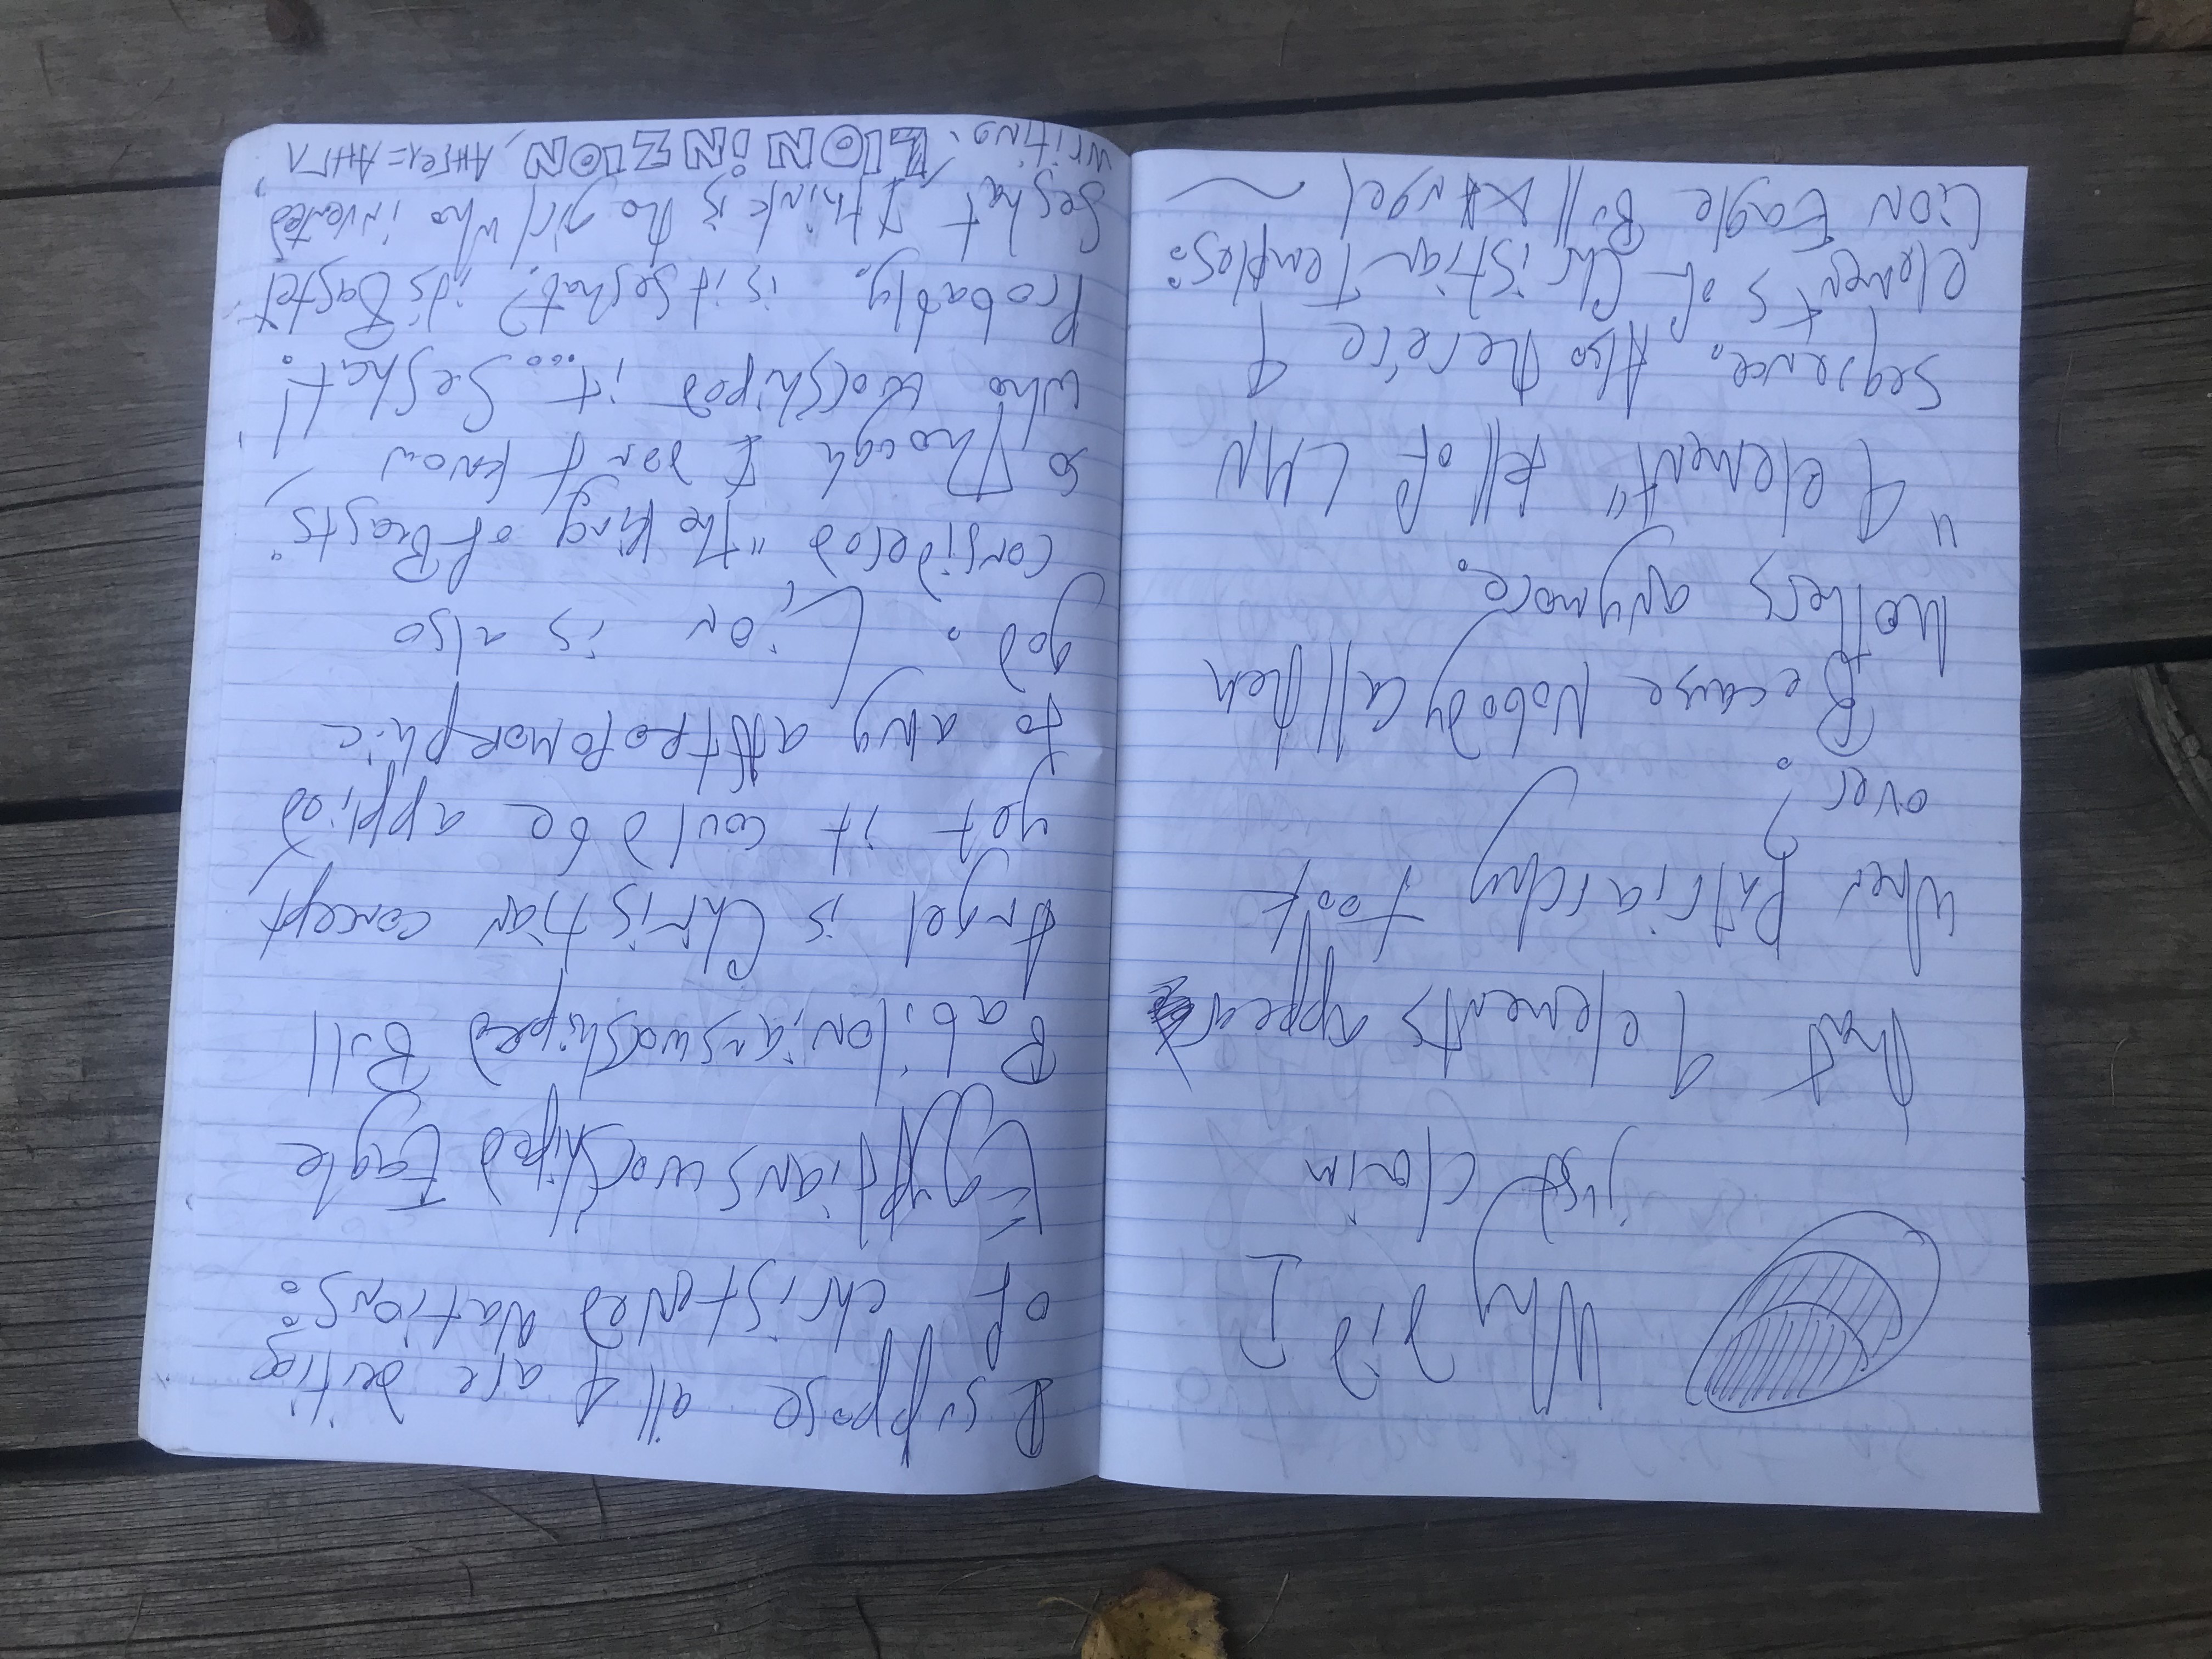 Why did I
just claim
that 4 elements appear
when Patriarchy took
over.
Because Nobody call them
Mothers anymore.
"4 element" tell of LMN
sequence. Also there're 4
elements of Christian Temples:
Lion Eagle Bull & Angel
I suppose all 4 are deities
of christened Nations:
Egyptians worshiped Eagle
Babilonians worshiped Bull
Angel is Christian concept,
yet it could be applied
to any
god. Lion is also
considered "the king of Beasts"
so Though I don't know
who worshiped it... Seshat!
Probably. is it Seshat? it's Bastet.
Seshat I think is the girl who invented
writing. LION iN ZION, АНГЕл=АНГЛ